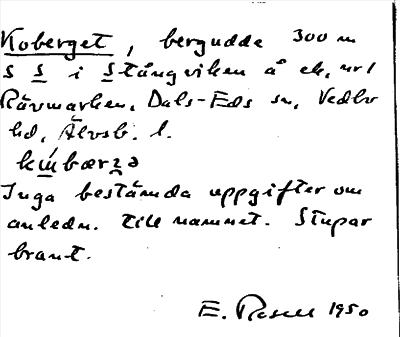 Koberget, bergudde 300 m
S S i Stångviken å ek. nr 1
Rävmarken, Dals-Eds sn, Vedbo
hd, Älvsb. l.
Inga bestämda uppgifter om
anledn. till namnet. Stupar
brant.
E. 1950